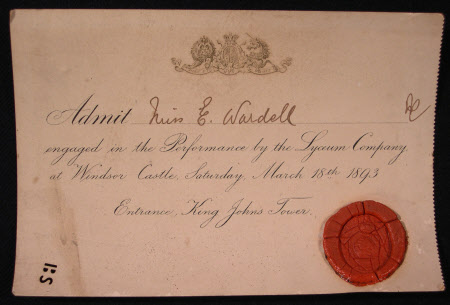 Admit Miss E. Wardell
engaged in the Performance by the Lyceum Company
at Windsor Castle, Saturday, March 18th 1893
Entrance, King John's Tower.
S:1